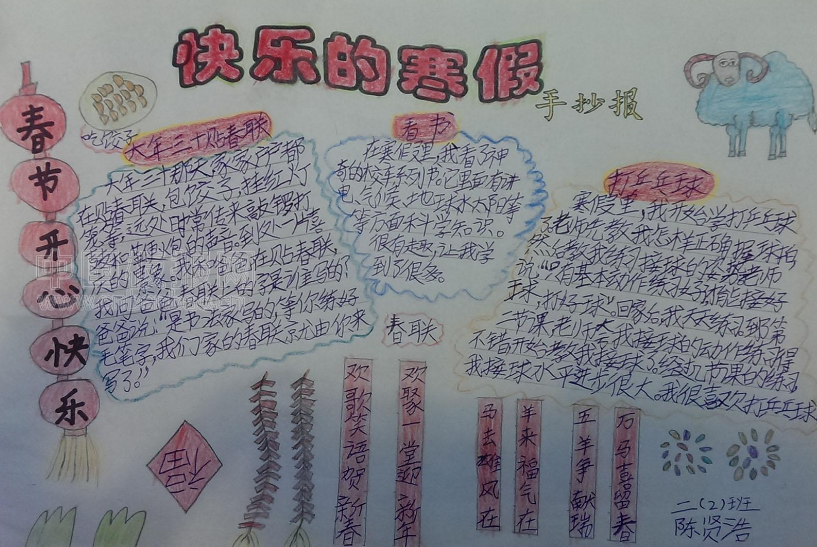 快乐的寒假
手抄报
春节开心快乐
吃饺子
大年三十贴春联
大年三十那天家家户户都
在贴春联,包饺子,挂红灯
笼等,远处时常传来敲锣打
鼓和鞭炮的声音,到处一片喜
庆的景象。我和爸爸在贴春联,
我问爸爸春联上的字是谁写的?
爸爸说:"是书法家写的,等你练好
毛笔字,我们家的春联就由你来
写了。"
看书
在寒假里,我看了神
奇的校车系列书,它里面有讲
电、气候、地球、水、太阳等
等方面科学知识。
很有趣,让我学
到了很多。
打乒乓球
寒假里,我开始学打乒乓球
老师先教我怎样正确握球拍
然后教我练习接球的姿势。老师
说:"只有基本动作练好了才能接好
球,打好球"。回家后我天天练习,到第
二节课老师
不错开始教我接球了。经过几节课的练习
我接球水平进步很大。我很喜欢打乒乓球
春联
欢歌笑语贺新春
欢聚一堂迎新年
马去雄风在
羊来福气在
五羊争献瑞
万马喜留春
福
二(2)班
陈贤浩